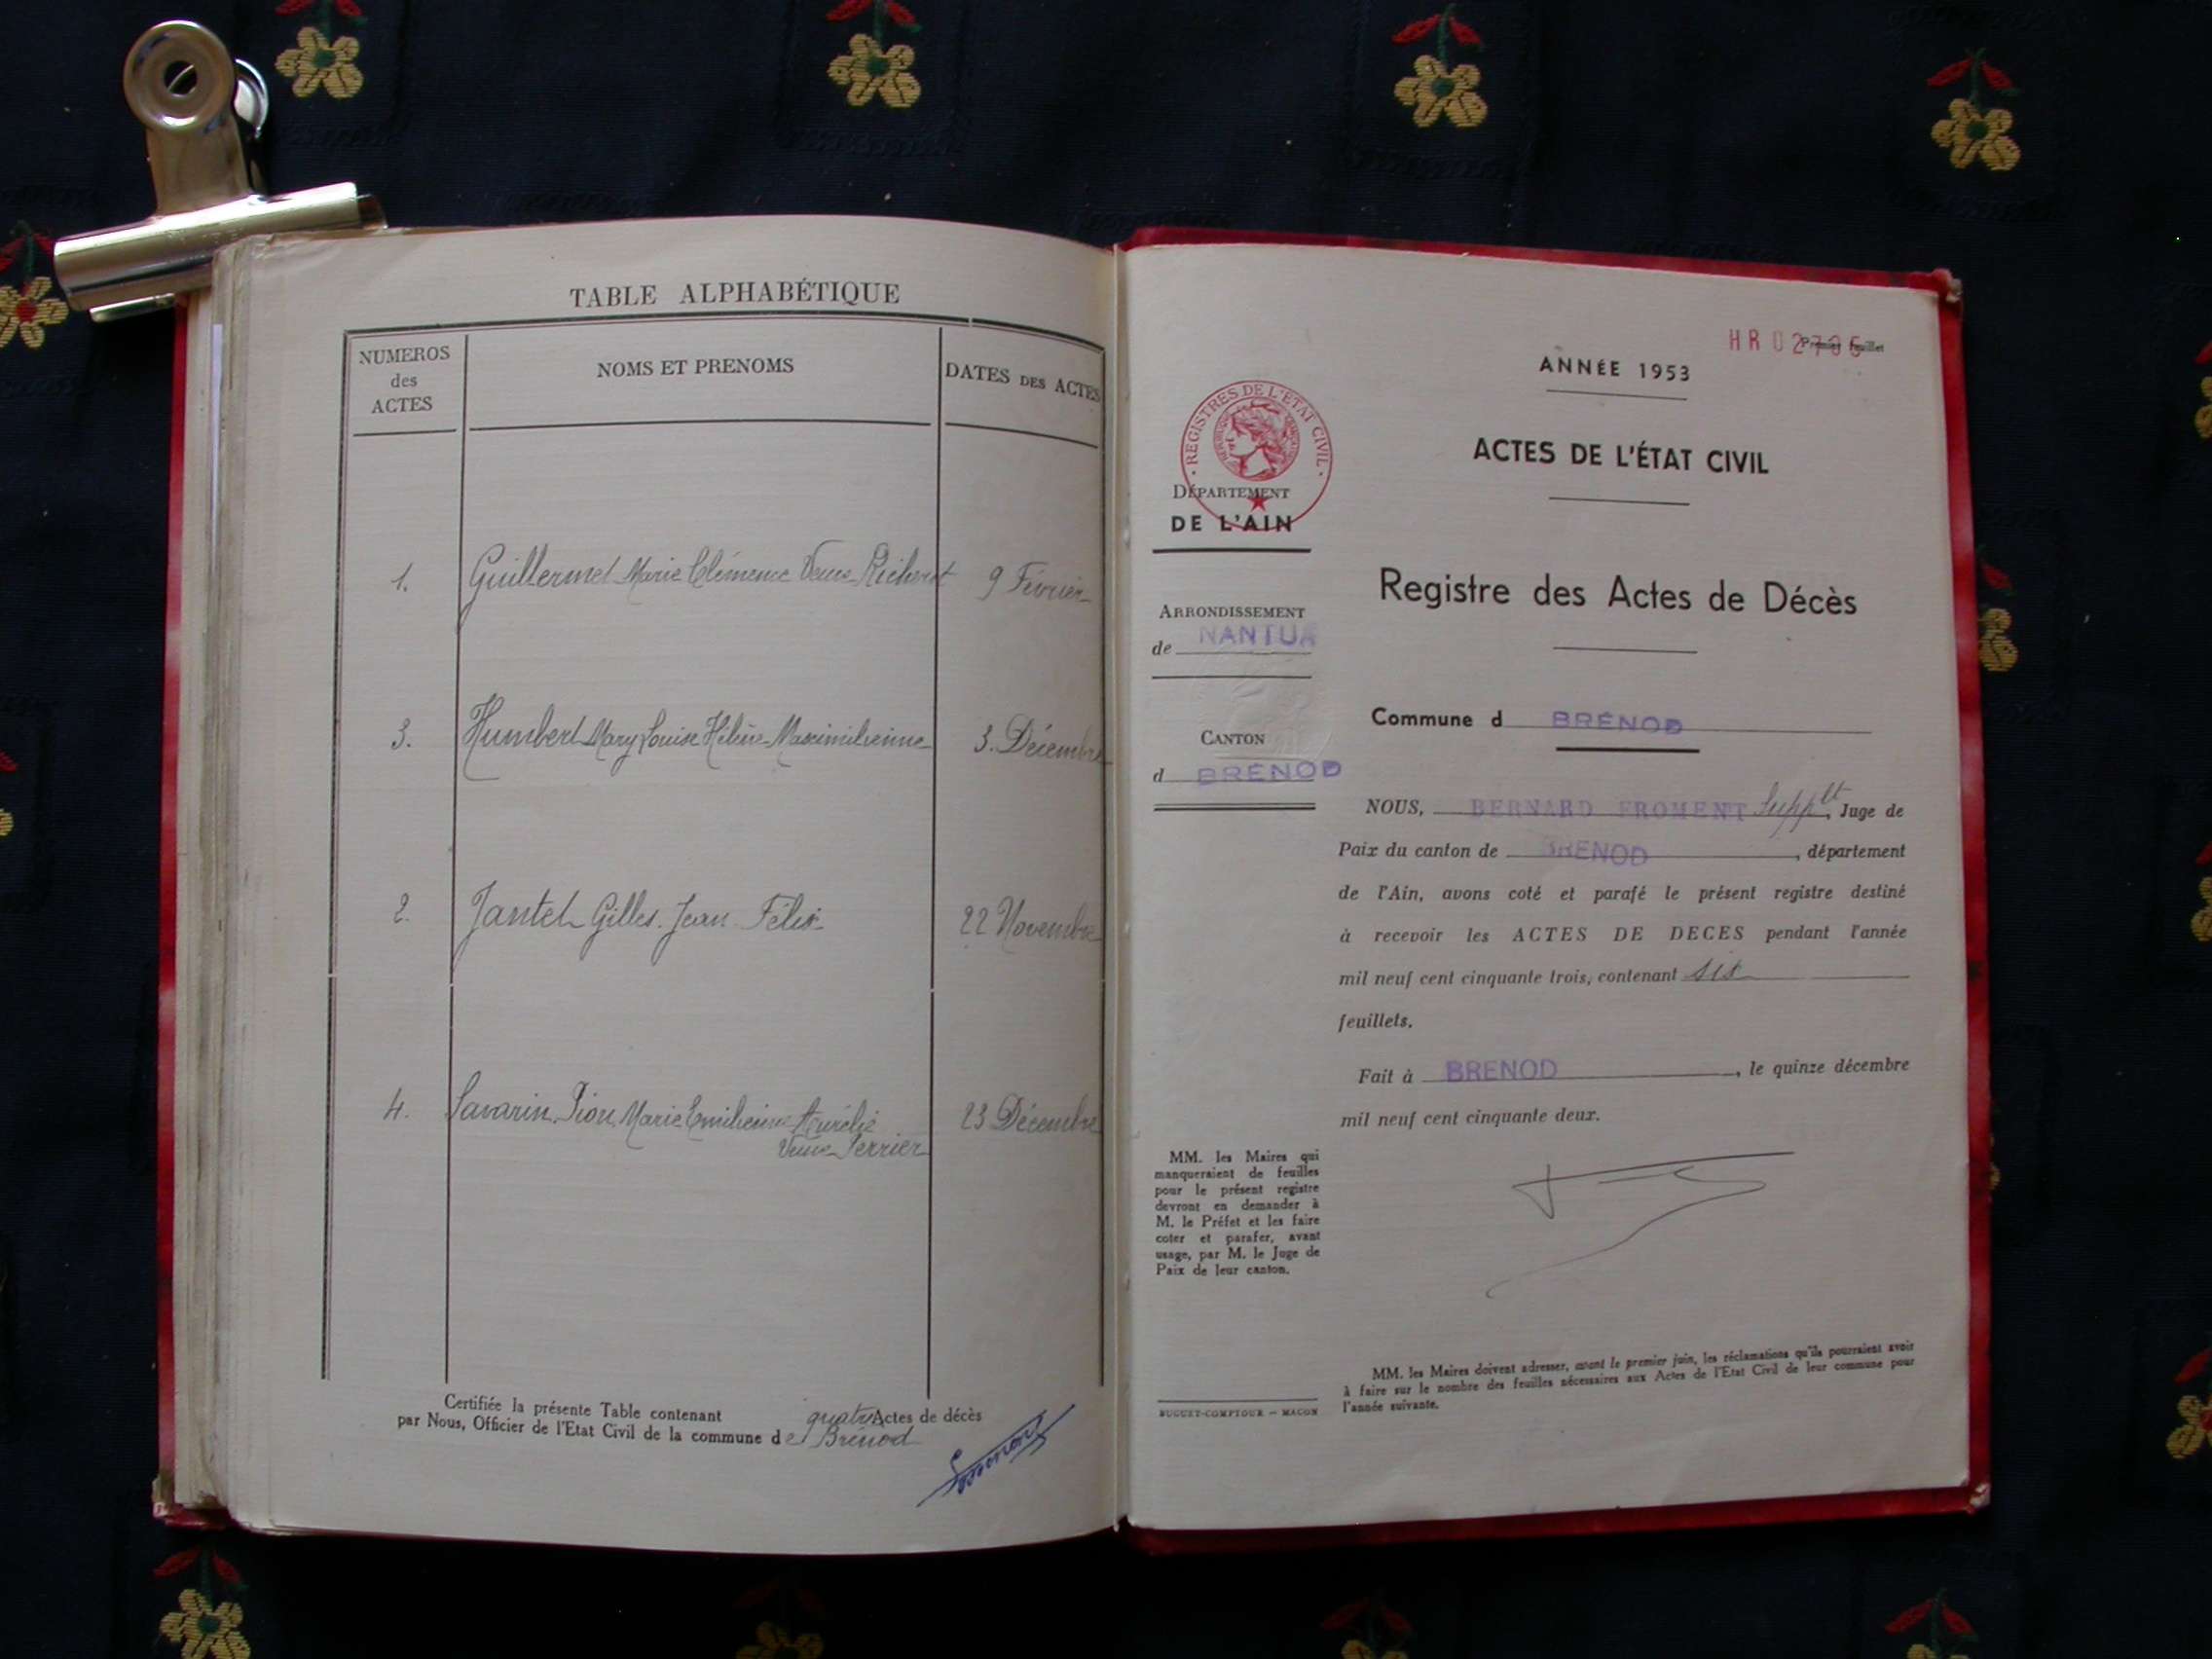 TABLE ALPHABÉTIQUE
NUMEROS
des
ACTES
NOMS ET PRENOMS
DATES DES ACTES
1. Guillermet Marie Clémence Veuve Richerot 9 Février
3. Humbert Mary Louise Hélène Maximilienne 3 Décembre
2. Jantet Gilles Jean Félix 22 Novembre
4. Savarin Pion Marie Emilienne Aurélie 23 Décembre
Veuve Perrier
Certifiée la présente Table contenant quatre Actes de décès
par Nous, Officier de l'Etat Civil de la commune de Brénod
REGISTRES DE L'ÉTAT CIVIL
DÉPARTEMENT
DE L'AIN
ARRONDISSEMENT
de NANTUA
CANTON
d BRÉNOD
MM. les Maires qui
manqueraient de feuilles
pour le présent registre
devront en demander à
M. le Préfet et les faire
coter et parafer, avant
usage, par M. le Juge de
Paix de leur canton.
BUGUET-COMPTOUR – MACON
HR 02705 Premier feuillet
ANNÉE 1953
ACTES DE L'ÉTAT CIVIL
Registre des Actes de Décès
Commune d BRÉNOD
NOUS, BERNARD FROMENT Supplt, Juge de
Paix du canton de BRENOD, département
de l'Ain, avons coté et parafé le présent registre destiné
à recevoir les ACTES DE DECES pendant l'année
mil neuf cent cinquante trois, contenant six
feuillets.
Fait à BRENOD, le quinze décembre
mil neuf cent cinquante deux.
MM. les Maires doivent adresser, avant le premier juin, les réclamations qu'ils pourraient avoir
à faire sur le nombre des feuilles nécessaires aux Actes de l'Etat Civil de leur commune pour
l'année suivante.